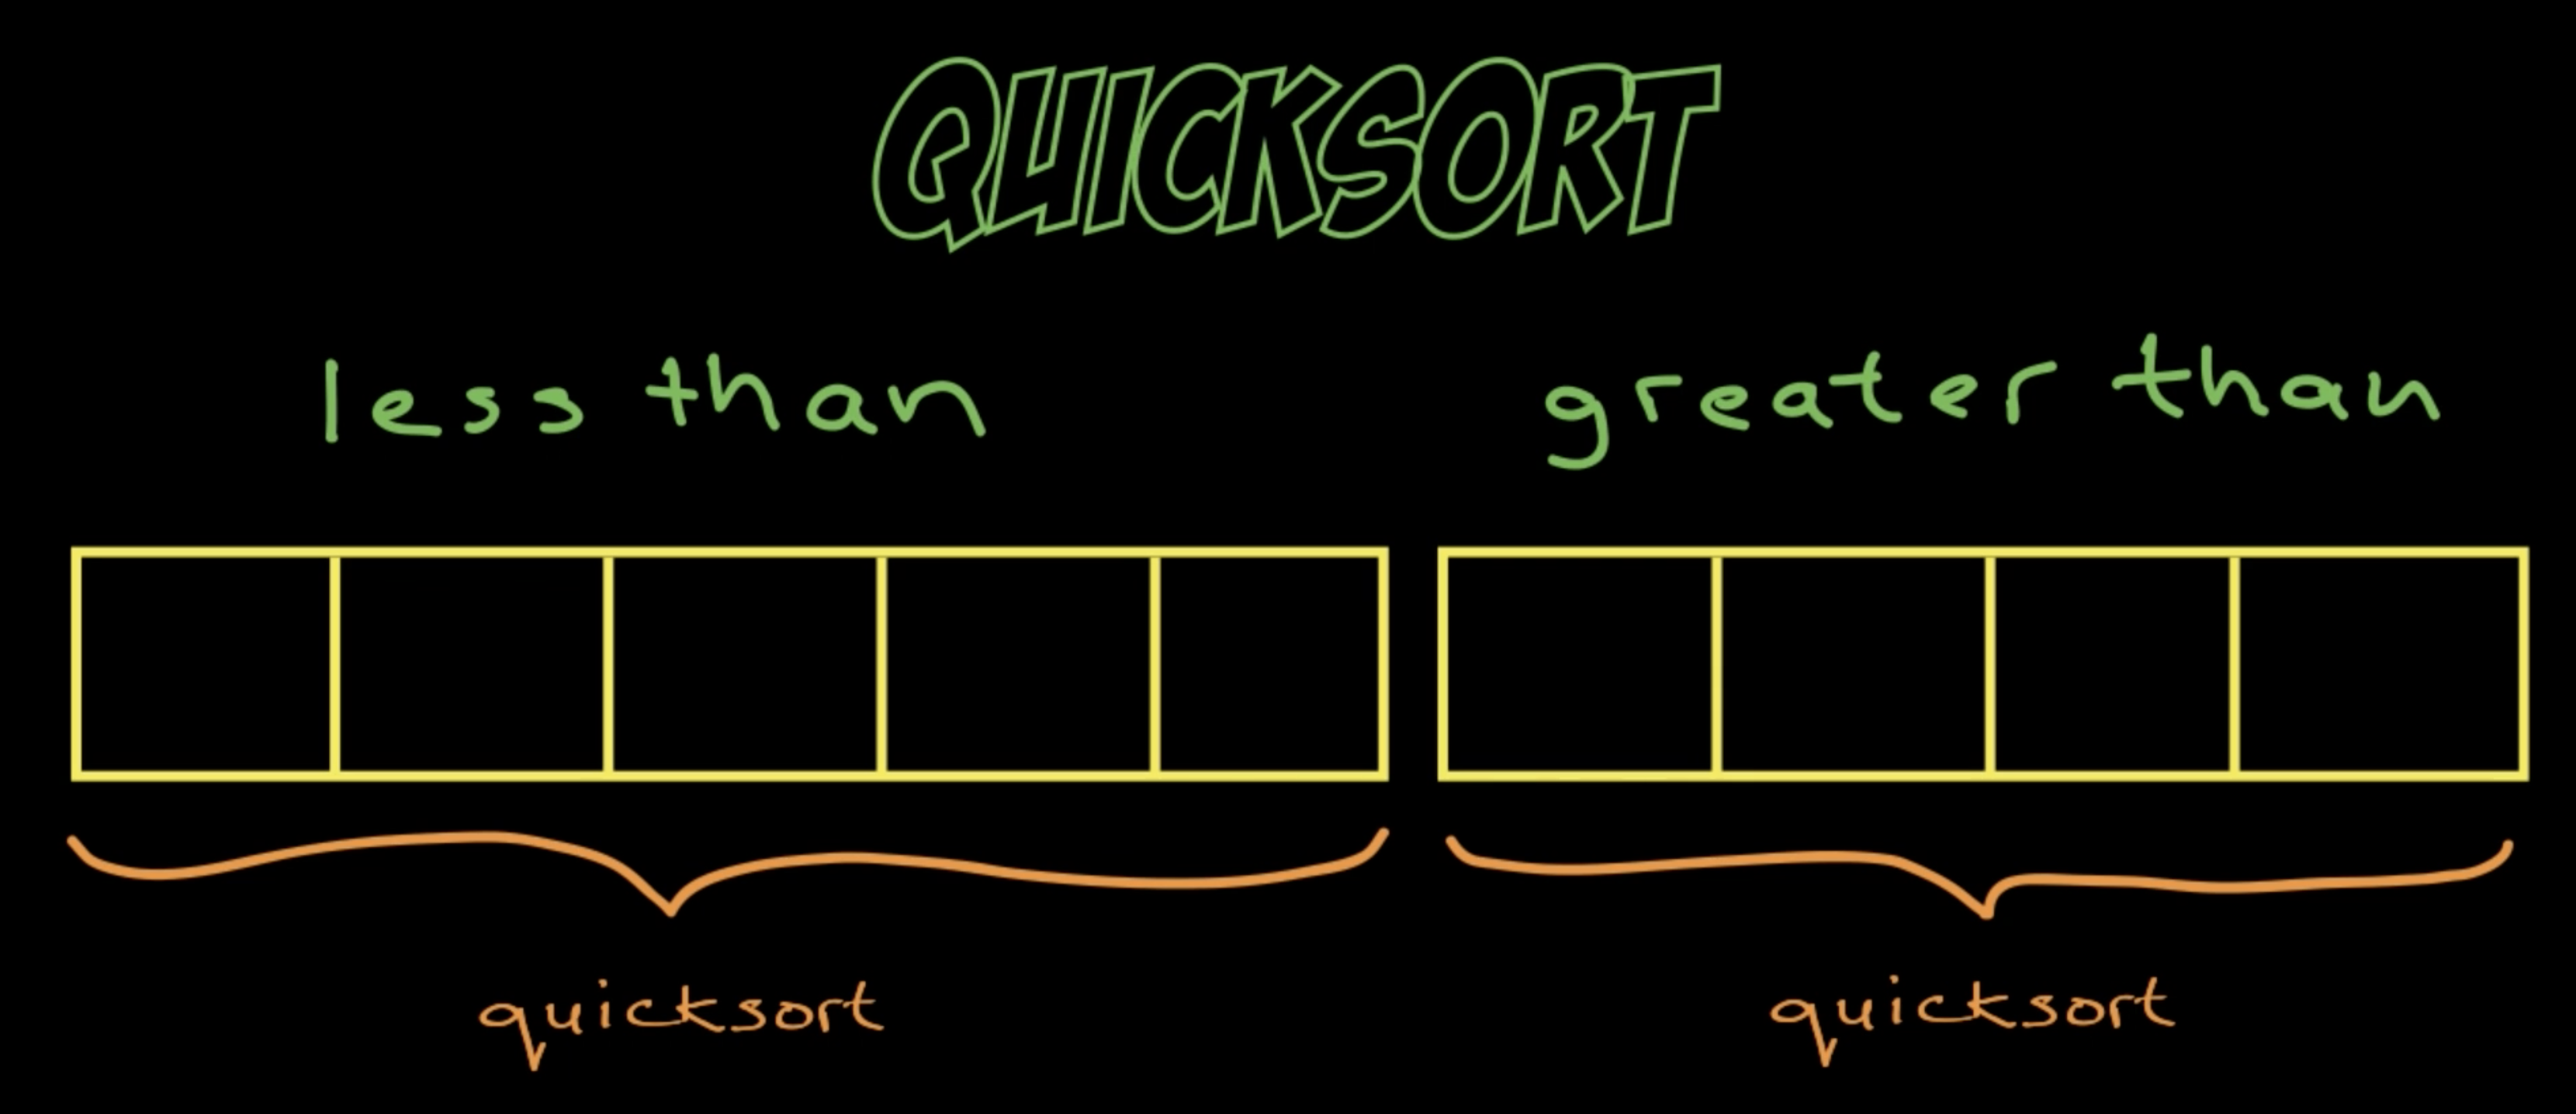 QUICKSORT
less than greater than
quicksort quicksort